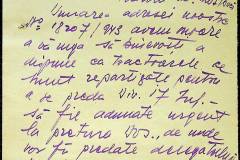 Urmare adresei noastre
No 18207/943 avem onoare
a vă ruga să binevoiți a
dispune ca tractoarele ce
sunt repartizate pentru
a se preda Div. 17 Inf.
să fie adunate urgent
la pretura Dvs., de unde
vor fi predate delegatului